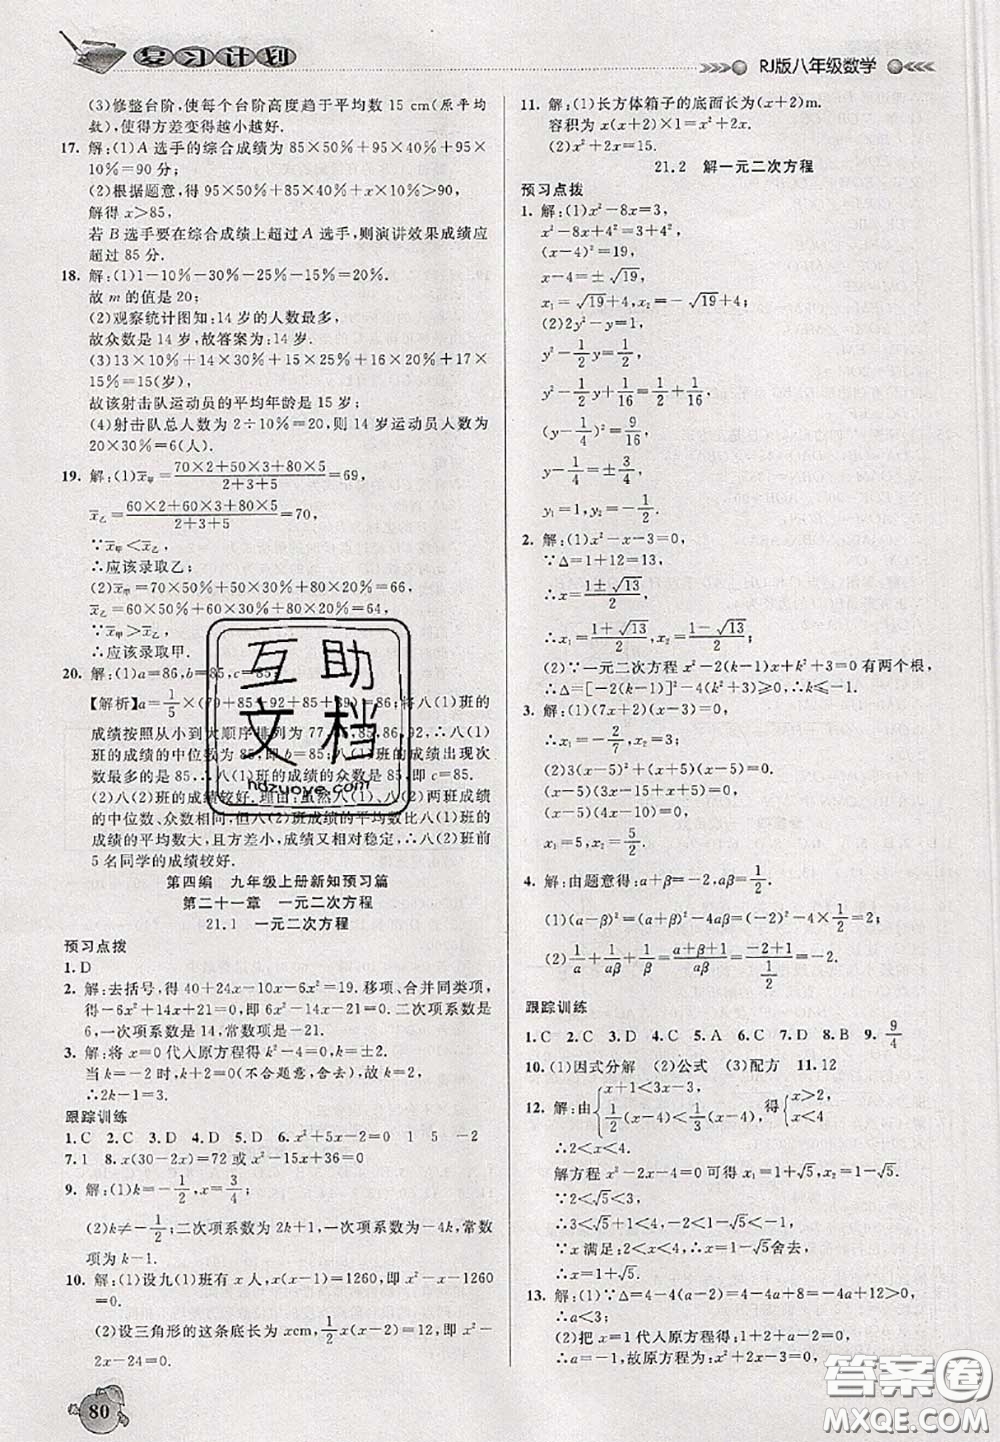 复习计划
RJ版八年级数学
(3)修整台阶,使每个台阶高度趋于平均数 15 cm(原平均
数),使得方差变得越小越好.
17. 解:(1)A 选手的综合成绩为 85×50%+95×40%+
95×10%=90(分);
(2)根据题意,得 95×50%+85×40%+x×10%>90,
解得 x>85,
若 B 选手要在综合成绩上超过 A 选手,则演讲效果成绩应
超过 85 分.
18. 解:(1)1-10%-30%-25%-15%=20%.
故 m 的值是 20;
(2)观察统计图知:14 岁的人数最多,
故众数是 14 岁,故答案为:14 岁.
(3)13×10%+14×30%+15×25%+16×20%+17×15
%=15(岁),
故该射击队运动员的平均年龄是 15 岁;
(4)射击队总人数为 2÷10%=20,则 14 岁运动员人数为
20×30%=6(人).
19. 解:(1)x̄甲=(70×2+50×3+80×5)/(2+3+5)=69,
x̄乙=(60×2+60×3+80×5)/(2+3+5)=70,
∵x̄甲<x̄乙
∴应该录取乙;
(2)x̄甲=70×50%+50×30%+80×20%=66,
x̄乙=60×50%+60×30%+80×20%=64,
∵x̄甲>x̄乙
∴应该录取甲.
20. 解:(1)a=86,b=85,c=85,
【解析】a=1/5×(79+85+92+85+89)=86;将八(1)班的
成绩按照从小到大顺序排列为 77,85,85,86,92,∴八(1)
班的成绩的中位数为 85,即 b=85;∵八(1)班的成绩出现次
数最多的是 85,∴八(1)班的成绩的众数是 85,即 c=85.
(2)八(2)班的成绩较好.理由:虽然八(1)、八(2)两班成绩
的中位数、众数相同,但八(2)班成绩的平均数比八(1)班
成绩的平均数大,且方差小,成绩又相对稳定,∴八(2)班前
5 名同学的成绩较好.
第四编 九年级上册新知预习篇
第二十一章 一元二次方程
21.1 一元二次方程
预习点拨
1. D
2. 解:去括号,得 40+24x-10x-6x²=19.移项、合并同类项,
得-6x²+14x+21=0,即 6x²-14x-21=0.二次项系数是
6,一次项系数是 14,常数项是-21.
3. 解:将 x=0 代入原方程得 k²-4=0,解得,k=±2.
当 k=-2 时,k+2=0(不合题意,舍去),∴k=2,
∴2k-1=3.
跟踪训练
1. C 2. C 3. D 4. D 5. D 6. x²+5x-2=0 1 5 -2
7. 1 8. x(30-2x)=72 或 x²-15x+36=0
9. 解:(1)k=-1/2,x=3/4;
(2)k≠-1/2;二次项系数为 2k+1,一次项系数为-4k,常数
项为 k-1.
10. 解:(1)设九(1)班有 x 人,x(x-1)=1260,即 x²-x-1260
=0;
(2)设三角形的这条底长为 xcm,1/2x(x-2)=12,即 x²-
2x-24=0.
80
11. 解:(1)长方体箱子的底面长为(x+2)m.
容积为 x(x+2)×1=x²+2x.
(2)x²+2x=15.
21.2 解一元二次方程
预习点拨
1. 解:(1)x²-8x=3,
x²-8x+4²=3+4²,
(x-4)²=19,
x-4=±√19,
x₁=√19+4,x₂=-√19+4.
(2)2y²-y=1,
y²-1/2y=1/2,
y²-1/2y+1/16=1/2+1/16,
(y-1/4)²=9/16,
y-1/4=±3/4,
y₁=1,y₂=-1/2.
2. 解:(1)x²-x-3=0,
∵Δ=1+12=13,
∴x=(1±√13)/2,
∴x₁=(1+√13)/2,x₂=(1-√13)/2;
(2)∵一元二次方程 x²-2(k-1)x+k²+3=0 有两个根,
∴Δ=[-2(k-1)]²-4(k²+3)≥0,∴k≤-1.
3. 解:(1)(7x+2)(x-3)=0,
∴x₁=-2/7,x₂=3;
(2)3(x-5)²+(x+5)(x-5)=0,
(x-5)(3x-15+x+5)=0,
(x-5)(4x-10)=0,
∴x₁=5,x₂=5/2.
4. 解:由题意得:α+β=-2,αβ=1/2.
(1)(α-β)²=(α+β)²-4αβ=(-2)²-4×1/2=2;
(2)1/α+1/β+1/αβ=(α+β+1)/αβ=(-2+1)/(1/2)=-2.
跟踪训练
1. C 2. C 3. C 4. B 5. A 6. D 7. D 8. B 9. 9/4
10. (1)因式分解 (2)公式 (3)配方 11. 12
12. 解:由{x+1<3x-3, 1/2(x-4)<1/3(x-4),得{x>2, x<4
∴2<x<4.
解方程 x²-2x-4=0 可得 x₁=1+√5,x₂=1-√5,
∵2<√5<3,
∴3<1+√5<4,-2<1-√5<-1.
∵x 满足:2<x<4,∴x=1-√5舍去,
∴x=1+√5.
13. 解:(1)∵Δ=4-4(a-2)=4-4a+8=12-4a>0
∴a<3;
(2)把 x=1 代入原方程得:1+2+a-2=0,
∴a=-1;故原方程为:x²+2x-3=0,
互助
文档
hdzuoye.com
答案圈
MXQE.COM